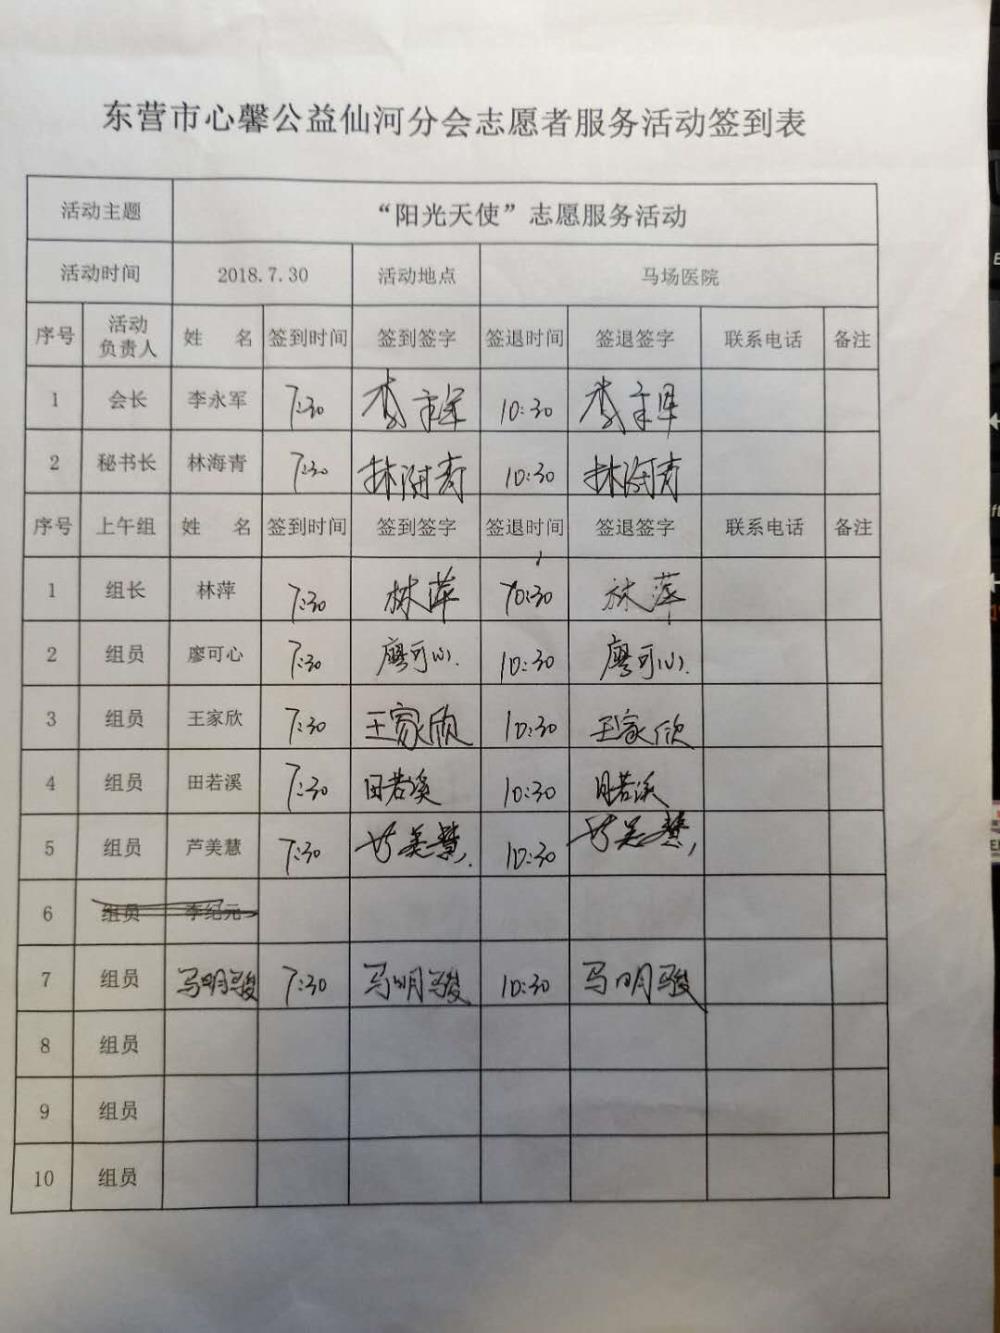 东营市心馨公益仙河分会志愿者服务活动签到表
活动主题 “阳光天使”志愿服务活动
活动时间 2018.7.30 活动地点 马场医院
序号 活动负责人 姓 名 签到时间 签到签字 签退时间 签退签字 联系电话 备注
1 会长 李永军 7:30 李永军 10:30 李永军
2 秘书长 林海青 7:30 林海青 10:30 林海青
序号 上午组 姓 名 签到时间 签到签字 签退时间 签退签字 联系电话 备注
1 组长 林萍 7:30 林萍 10:30 林萍
2 组员 廖可心 7:30 廖可心. 10:30 廖可心.
3 组员 王家欣 7:30 王家欣 10:30 王家欣
4 组员 田若溪 7:30 田若溪 10:30 田若溪
5 组员 芦美慧 7:30 芦美慧. 10:30 芦美慧,
6 组员 李纪元
7 组员 马明骏 7:30 马明骏 10:30 马明骏
8 组员
9 组员
10 组员